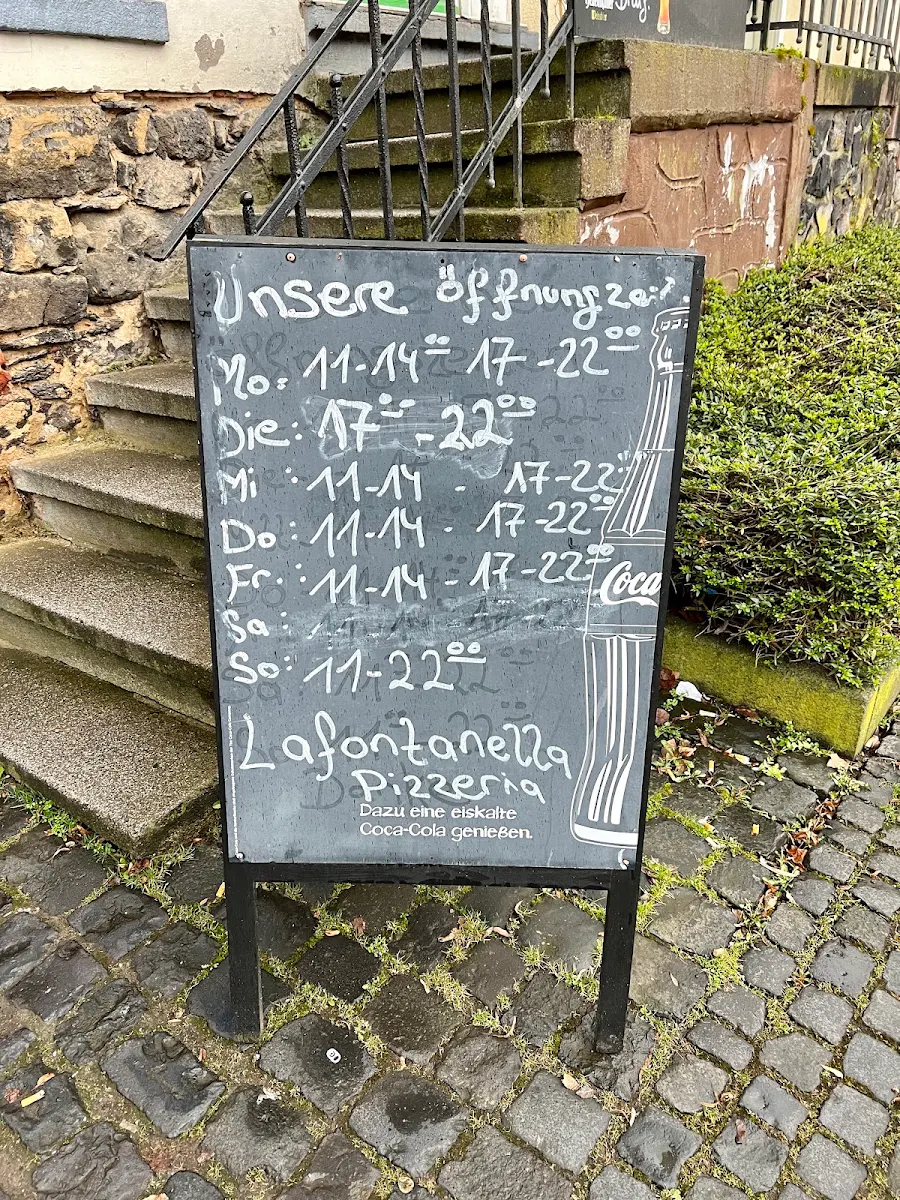 Unsere Öffnungszeit
Mo: 11-14⁰⁰ 17-22⁰⁰
Die: 17⁰⁰-22⁰⁰
Mi: 11-14 - 17-22⁰⁰
Do: 11-14 - 17-22⁰⁰
Fr.: 11-14 - 17-22⁰⁰
Sa:
So: 11-22⁰⁰
Coca
Lafontanella
Pizzeria
Dazu eine eiskalte
Coca-Cola genießen.